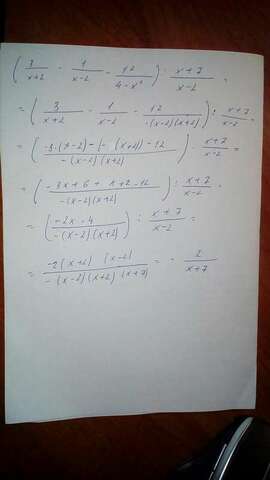 ( 3/(x+2) - 1/(x-2) - 12/(4-x²) ) : (x+7)/(x-2) =
= ( 3/(x+2) - 1/(x-2) - 12/(-(x-2)(x+2)) ) : (x+7)/(x-2) =
= ( (-3(x-2) - (-(x+2)) - 12)/(-(x-2)(x+2)) ) : (x+7)/(x-2) =
= ( (-3x+6+x+2-12)/(-(x-2)(x+2)) ) : (x+7)/(x-2) =
= ( (-2x-4)/(-(x-2)(x+2)) ) : (x+7)/(x-2) =
= (-2(x+2)(x-2))/(-(x-2)(x+2)(x+7)) = - 2/(x+7)